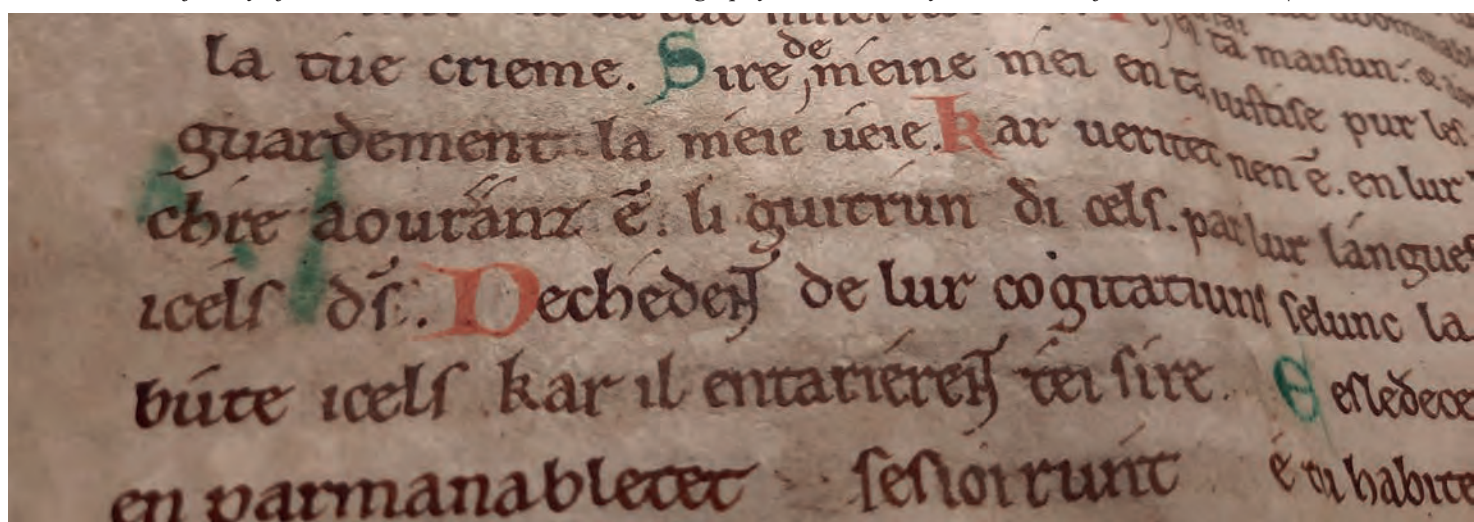 la tue crieme. Sire de meine mei en ta iustise pur les
guardement la meie ueie. Kar ueritet nen ē. en lur
chre aouranz ē. li guitrun di cels. par lur langues
icels ds̄. Decheden̄t de lur cogitatiuns selunc la
bute icels kar il entarieren̄t tei sire. E esledece
en parmanabletet sesioirunt é tu habite